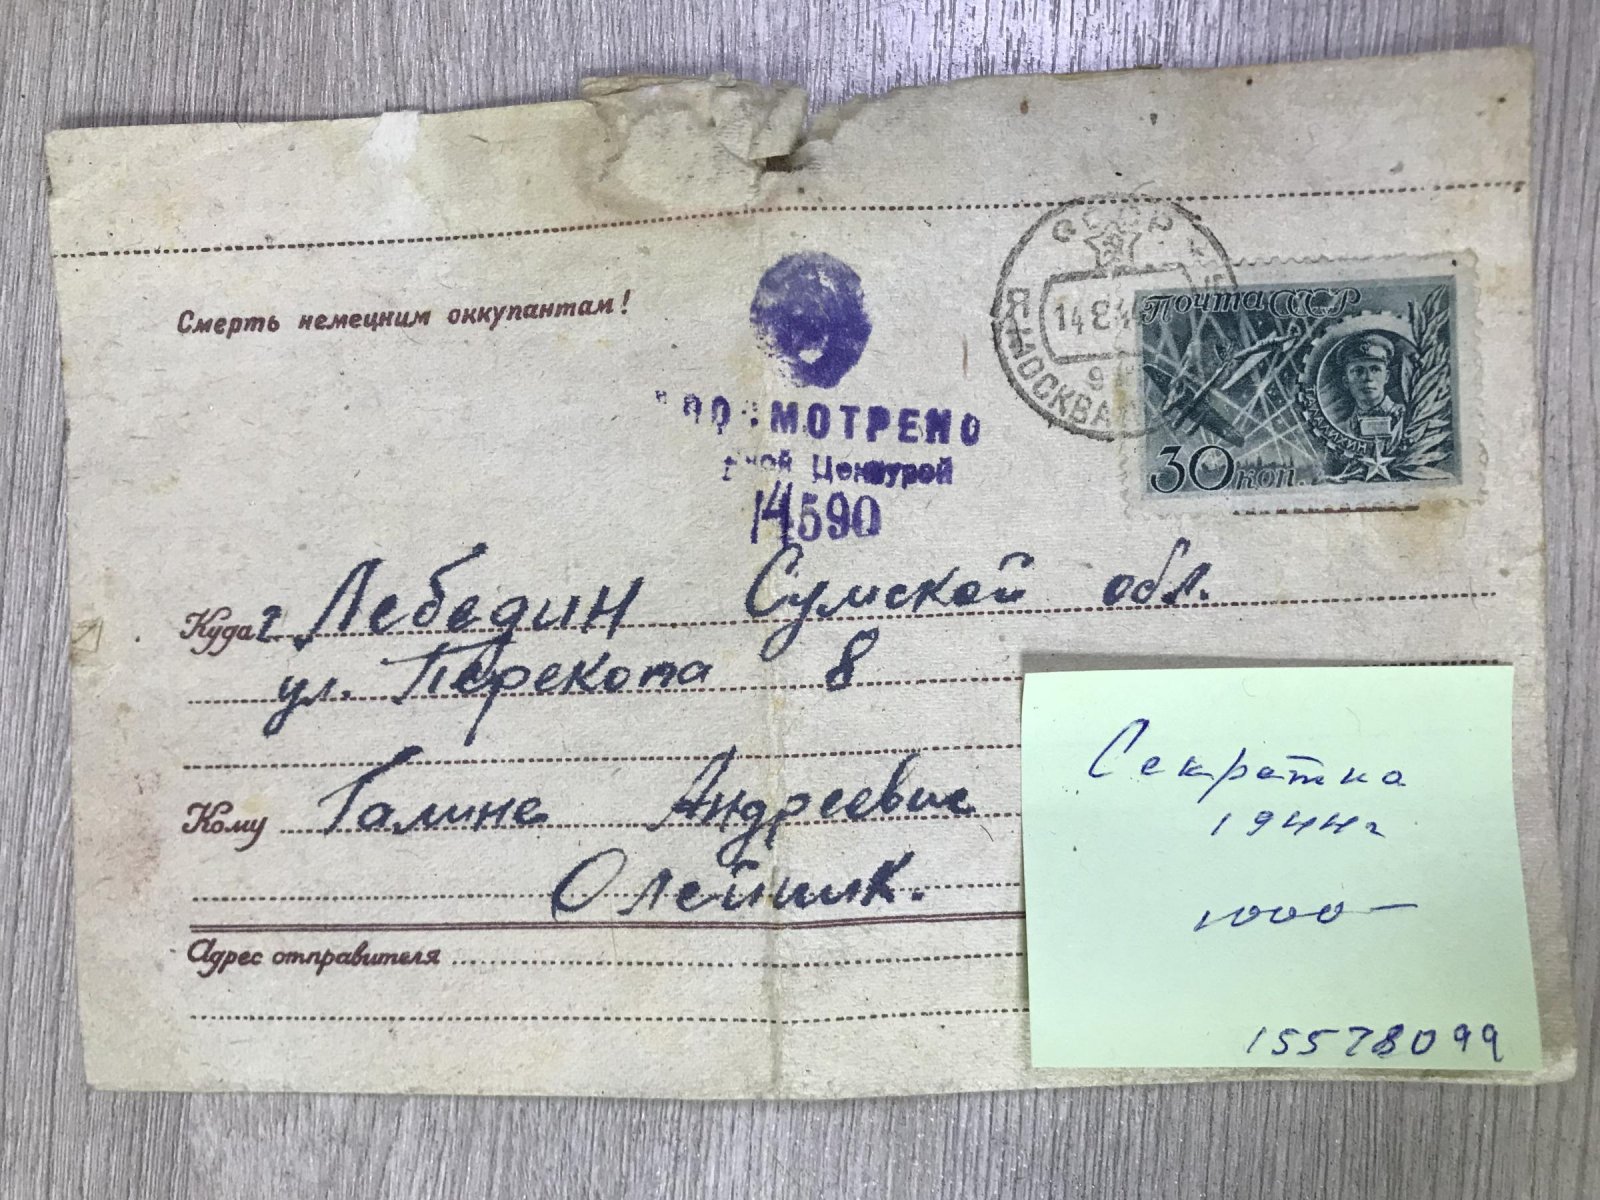 Смерть немецким оккупантам!
СССР
МОСКВА
14 8 44
Почта СССР
ТАЛАЛИХИН
30 коп.
ПРОСМОТРЕНО
Цензурой
14590
Куда г. Лебедин Сумской обл.
ул. Перекопа 8
Кому Галине Андреевне
Олейник.
Адрес отправителя
Секретка
1944г
1000-
15578099